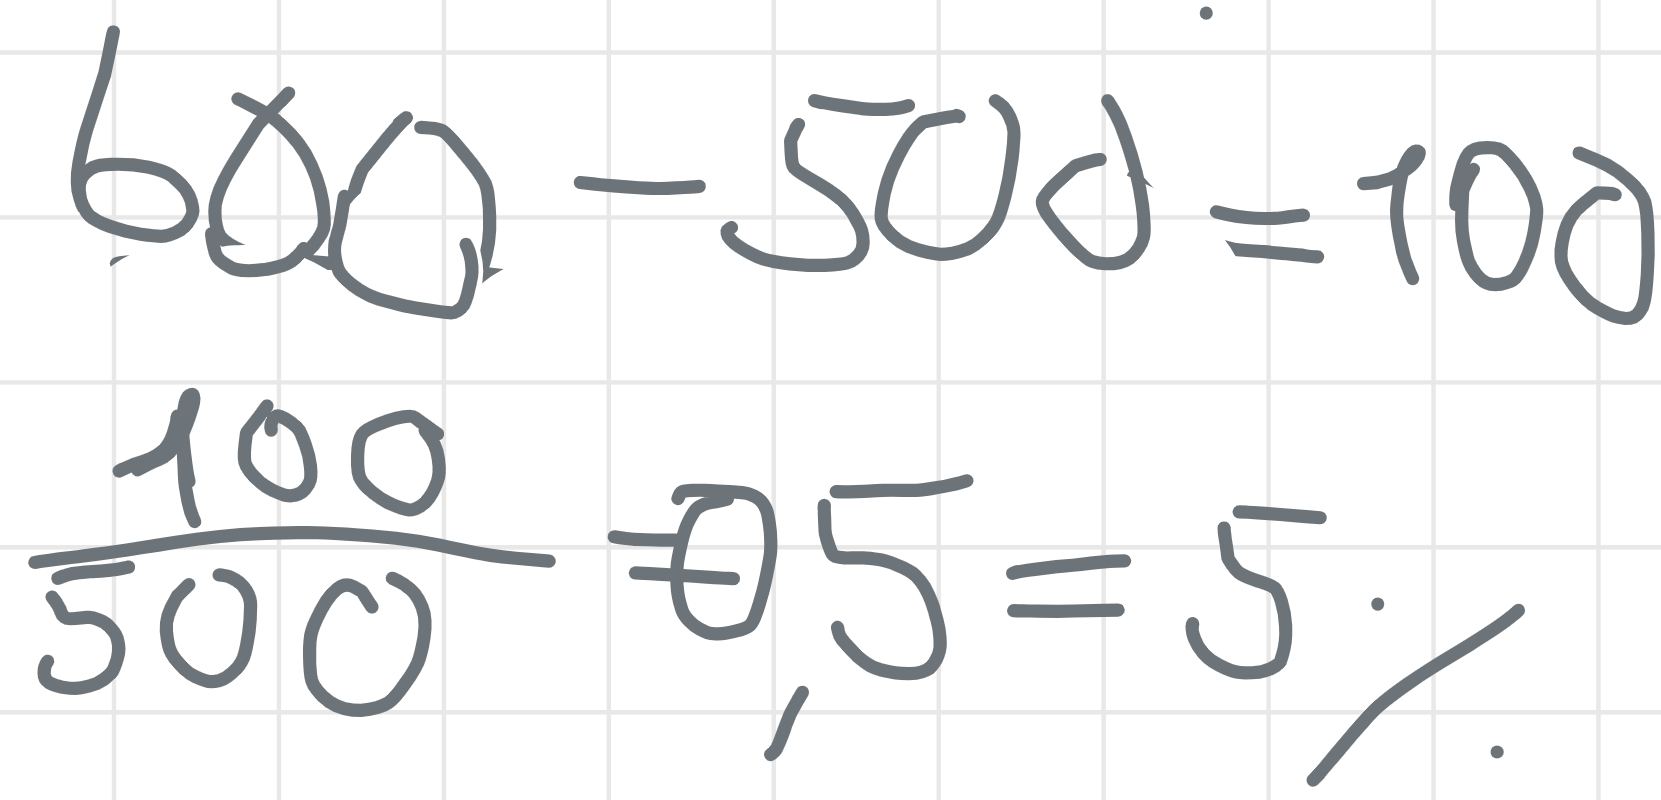 600 - 500 = 100
100/500 = 0,5 = 5%